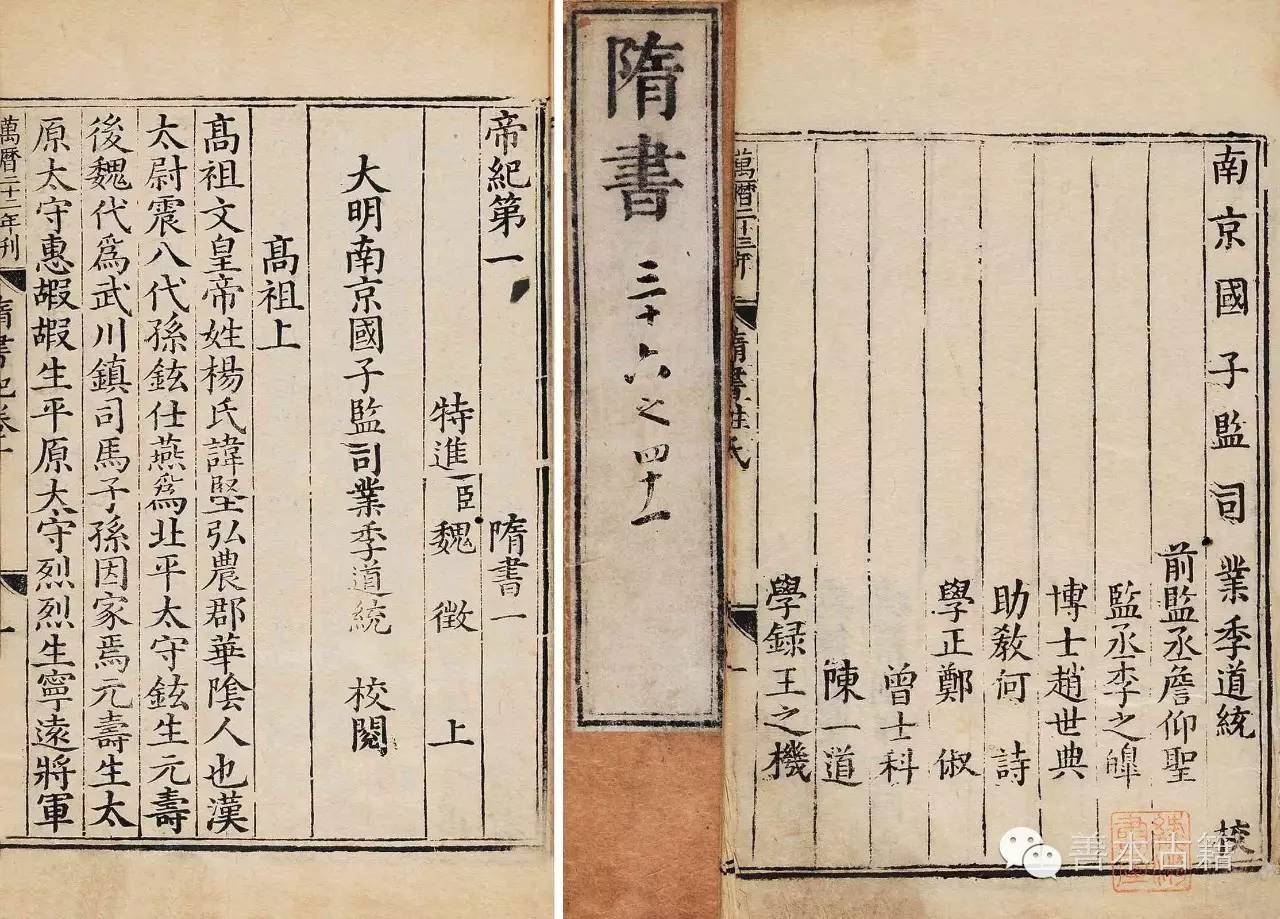 帝紀第一 隋書一
特進臣魏徵上
大明南京國子監司業季道統 校閱
高祖上
高祖文皇帝姓楊氏諱堅弘農郡華陰人也漢
太尉震八代孫鉉仕燕爲北平太守鉉生元壽
後魏代爲武川鎮司馬子孫因家焉元壽生太
原太守惠嘏嘏生平原太守烈烈生寧遠將軍
萬曆二十二年刊
隋書紀卷一
一
隋書
三十六之四十一
南京國子監司業季道統校
前監丞詹仰聖
監丞李之皥
博士趙世典
助敎何詩
學正鄭俶
曾士科
陳一道
學録王之機
萬曆二十三年
隋書姓氏
一
善本古籍